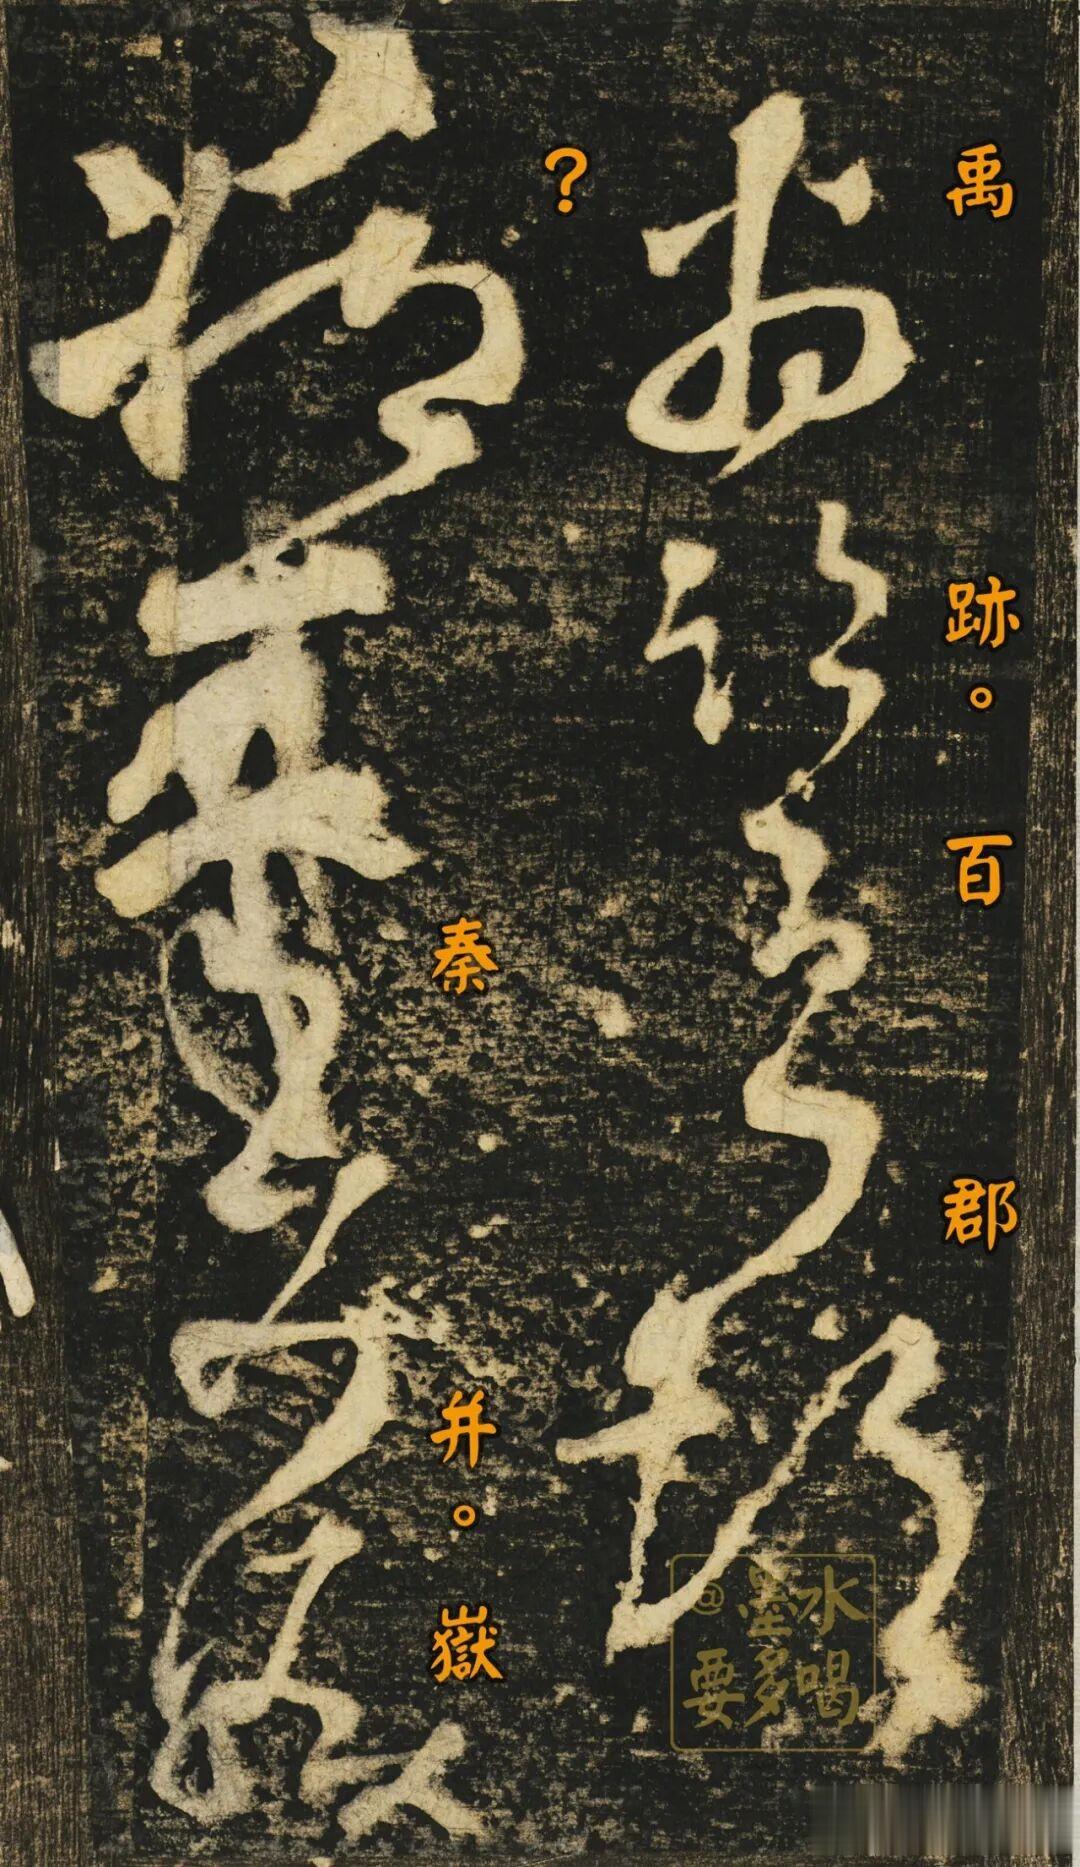 禹跡。百郡
?秦并。嶽
@墨水
要多喝